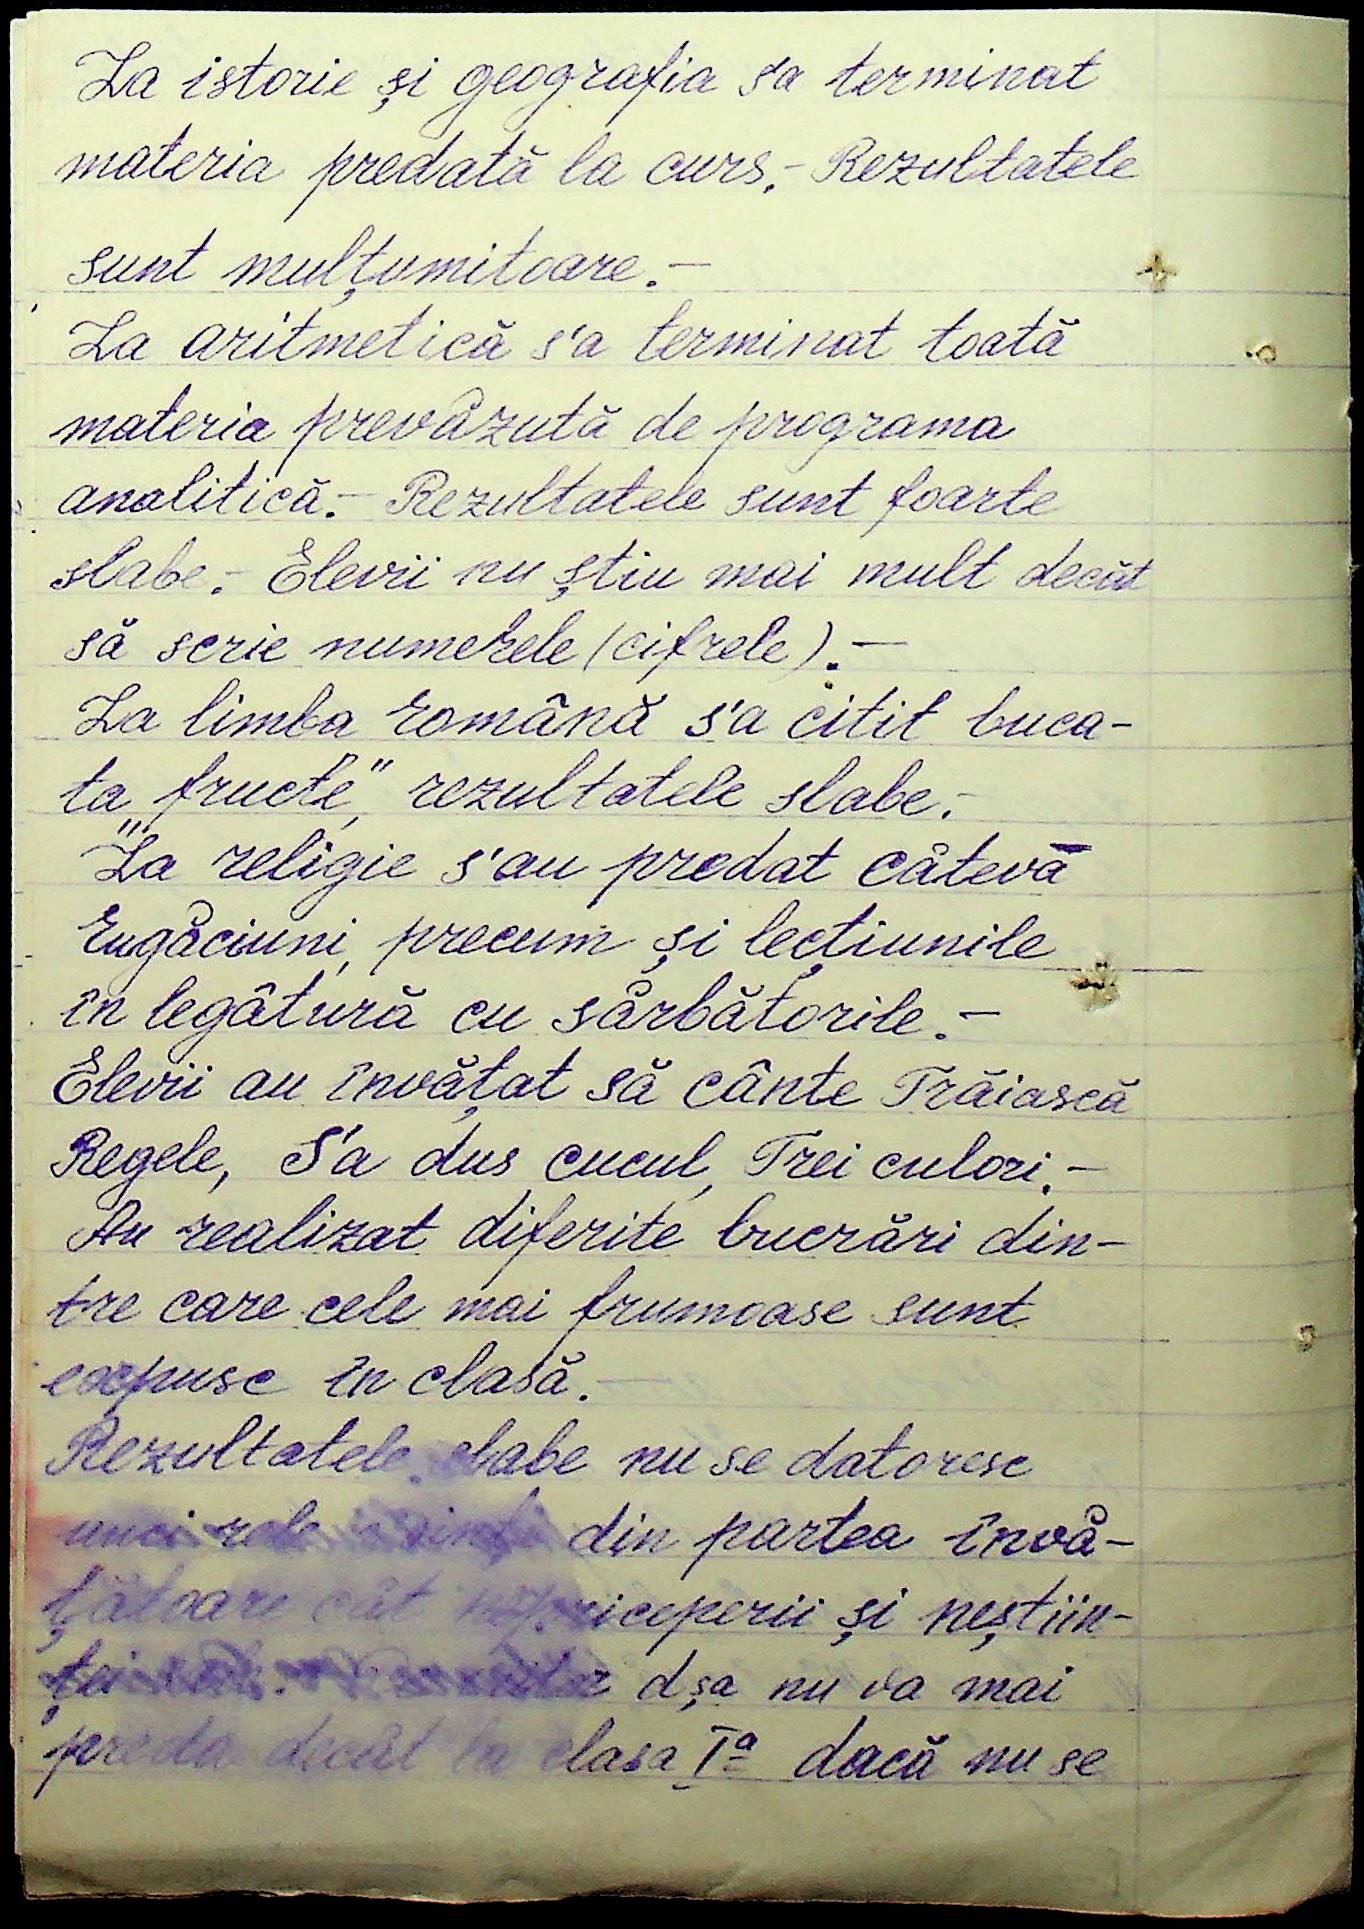 La istorie și geografia sa terminat
materia predată la curs.- Rezultatele
sunt mulțumitoare.-
La aritmetică s'a terminat toată
materia prevăzută de programa
analitică.- Rezultatele sunt foarte
slabe.- Elevii nu știu mai mult decât
să scrie numerele (cifrele).-
La limba română s'a citit buca-
ta „fructe", rezultatele slabe.-
La religie s'au predat câteva
rugăciuni, precum și lecțiunile
în legătură cu sărbătorile.-
Elevii au învățat să cânte Trăiască
Regele, S'a dus cucul, Trei culori.-
Au realizat diferite lucrări din-
tre care cele mai frumoase sunt
expuse în clasă.-
Rezultatele slabe nu se datoresc
unei rele din partea învă-
țătoare cât nepriceperii și neștiin-
ței dșa nu va mai
preda decât la clasa Iª dacă nu se